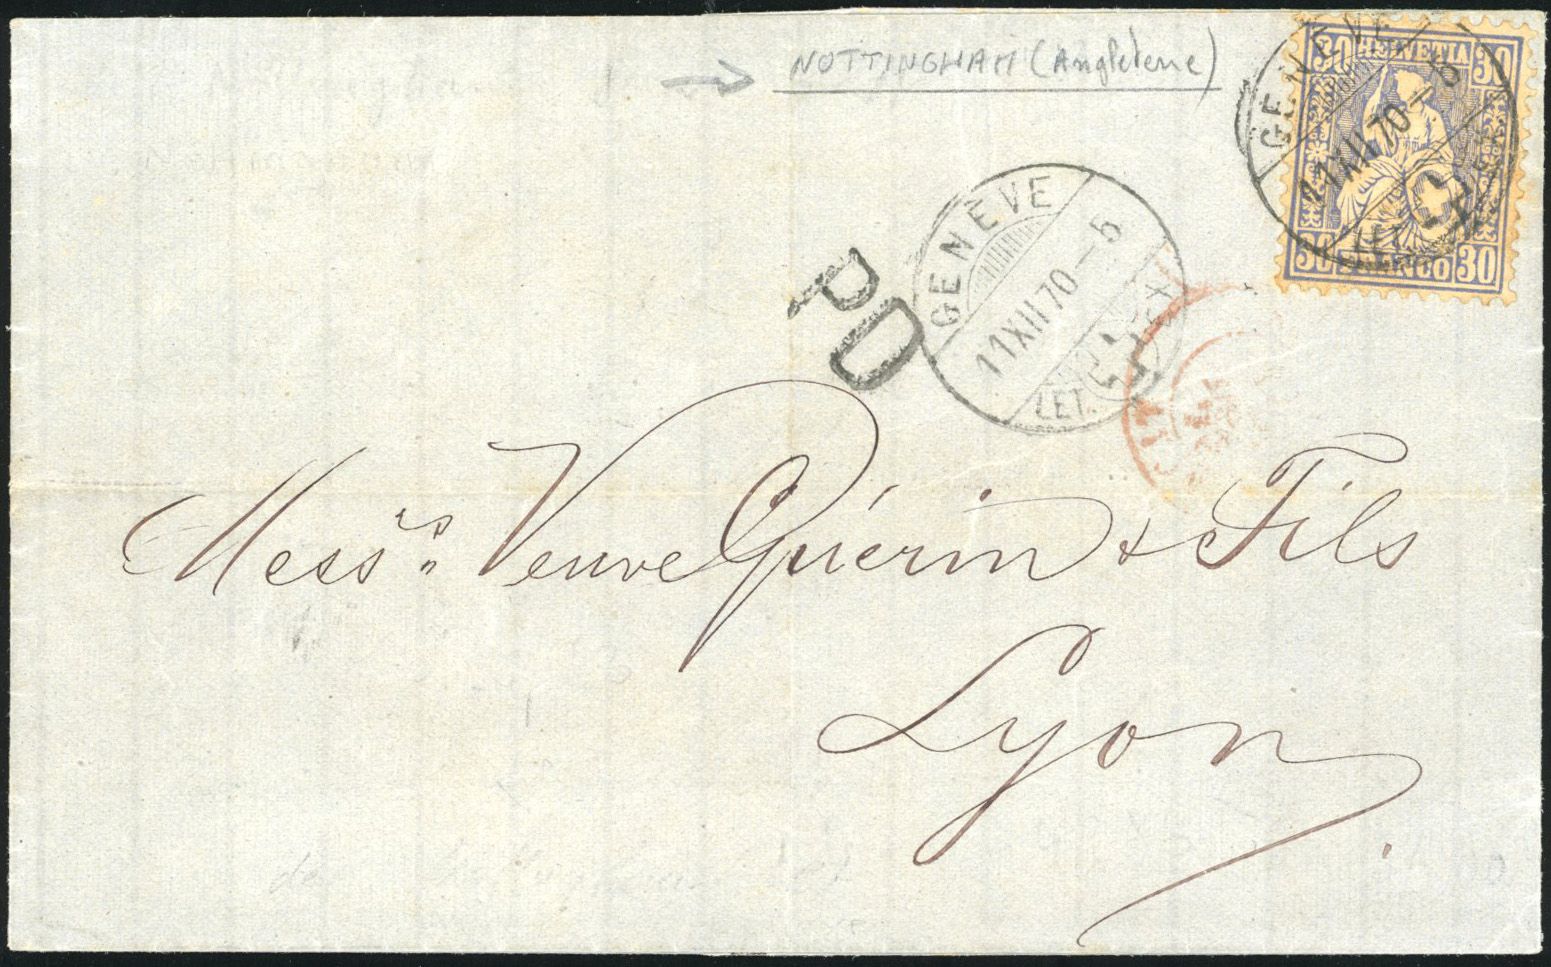 NOTTINGHAM (Angleterre)
30 HELVETIA 30
30 FRANCO 30
GENÈVE
11 XII 70 – 5
GENÈVE
11 XII 70 – 5
LET. EXP.
PD
Mess.rs Veuve Guérin & Fils
Lyon